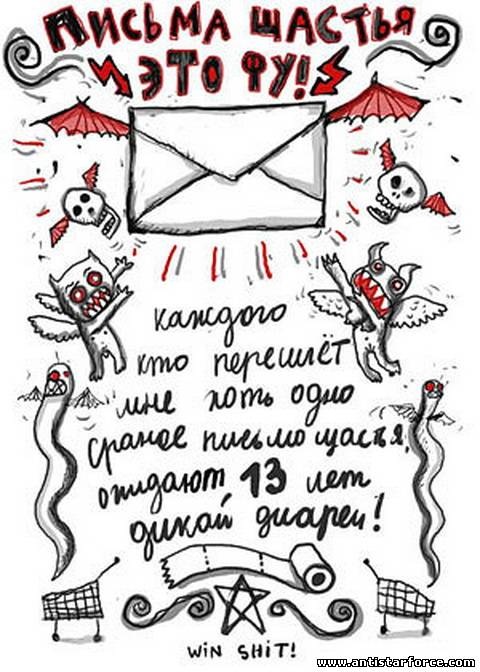 ПИСЬМА ЩАСТЬЯ
ЭТО ФУ!
каждого
кто перешлёт
мне хоть одно
сраное письмо щастья,
ожидают 13 лет
дикой диареи!
WiN SHiT!
www.antistarforce.com